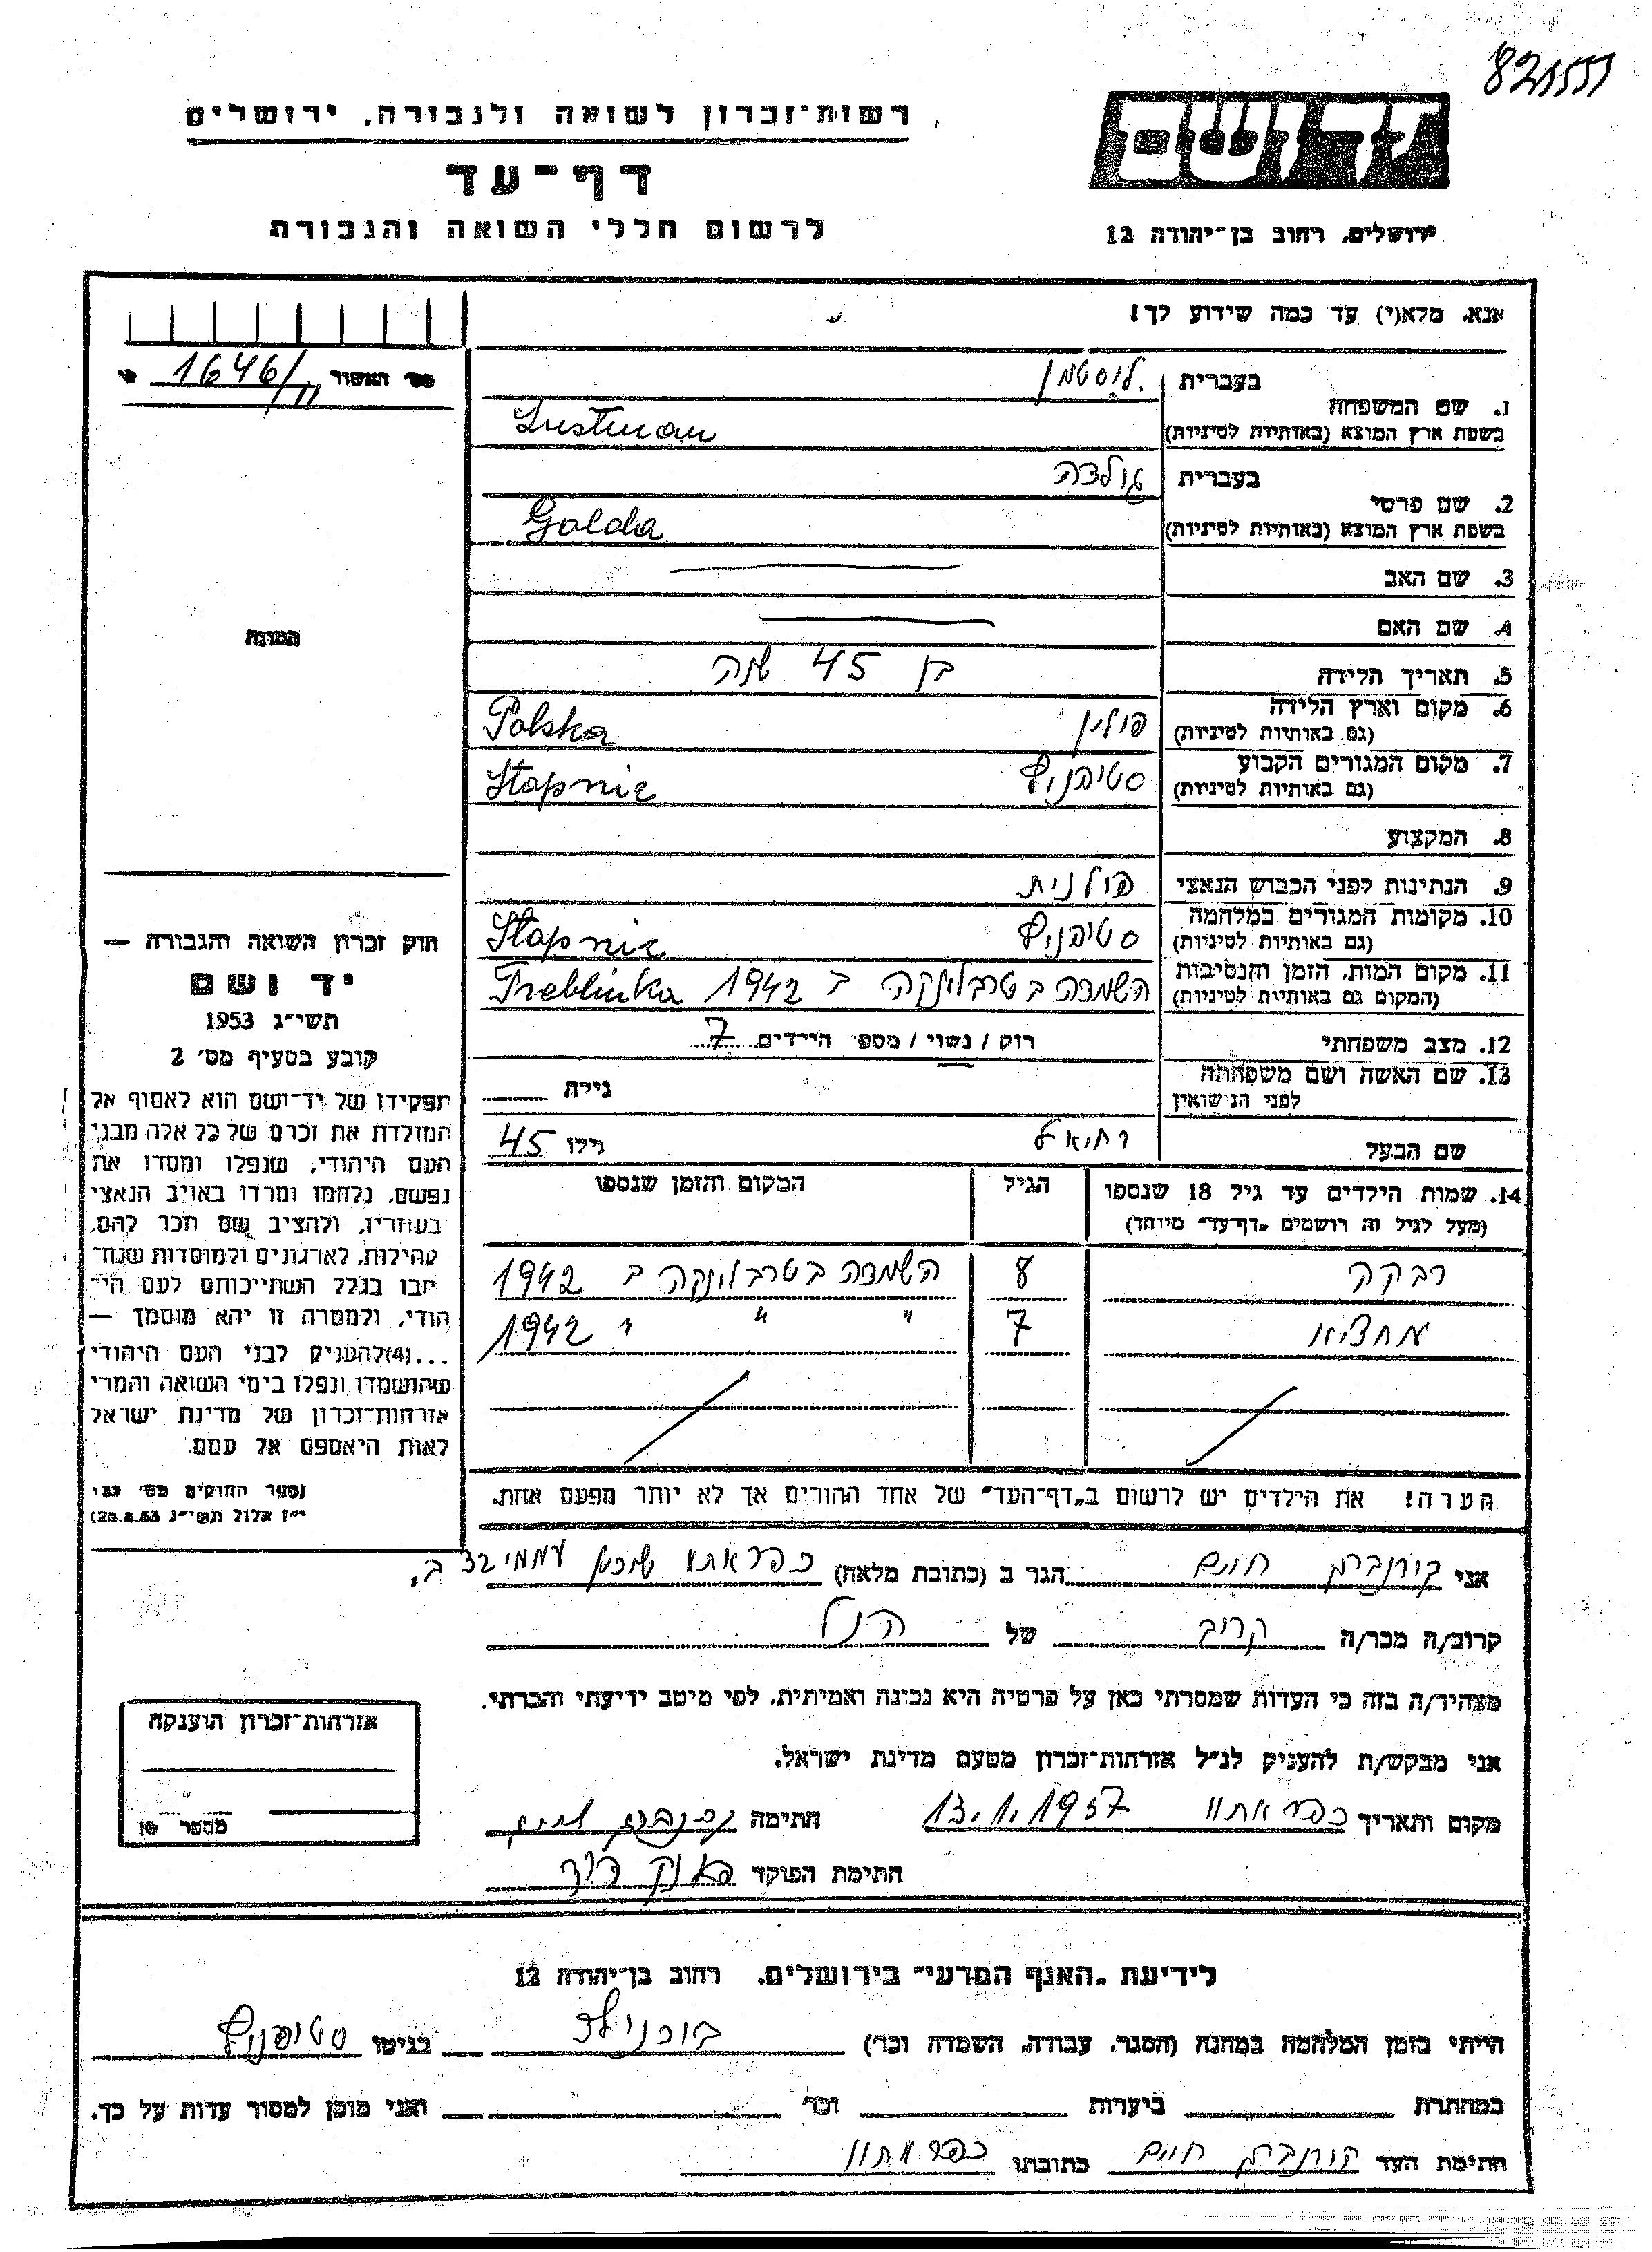 821555
רשות-זכרון לשואה ולגבורה, ירושלים
דף-עד
לרשום חללי השואה והגבורה
יד ושם
ירושלים, רחוב בן-יהודה 12
אנא, מלא(י) עד כמה שידוע לך!
מס' האשור 1646/11
1. שם המשפחה
בעברית לוסטמן
בשפת ארץ המוצא (באותיות לטיניות) Lustman
2. שם פרטי
בעברית גולדה
בשפת ארץ המוצא (באותיות לטיניות) Golda
3. שם האב
4. שם האם
5. תאריך הלידה בן 45 שנה
6. מקום וארץ הלידה
(גם באותיות לטיניות) פולין Polska
7. מקום המגורים הקבוע
(גם באותיות לטיניות) סטופניץ Stopnic
8. המקצוע
9. הנתינות לפני הכבוש הנאצי פולנית
10. מקומות המגורים במלחמה
(גם באותיות לטיניות) סטופניץ Stopnic
11. מקום המות, הזמן והנסיבות
(המקום גם באותיות לטיניות) השמדה בטרבלינקה ב 1942 Treblinka
12. מצב משפחתי רוק / נשוי / מספר הילדים 7
13. שם האשה ושם משפחתה
לפני הנישואין גילה
שם הבעל גילו 45
14. שמות הילדים עד גיל 18 שנספו
(מעל לגיל זה רושמים „דף-עד" מיוחד)
הגיל
המקום והזמן שנספו
רבקה 8 השמדה בטרבלינקה ב 1942
7 " " " 1942
הערה! את הילדים יש לרשום ב„דף-העד" של אחד ההורים אך לא יותר מפעם אחת.
התמונה
חוק זכרון השואה והגבורה —
יד ושם
תשי"ג 1953
קובע בסעיף מס' 2
תפקידו של יד-ושם הוא לאסוף אל
המולדת את זכרם של כל אלה מבני
העם היהודי, שנפלו ומסרו את
נפשם, נלחמו ומרדו באויב הנאצי
ובעוזריו, ולהציב שם וזכר להם,
לקהילות, לארגונים ולמוסדות שנח־
רבו בגלל השתייכותם לעם הי־
הודי, ולמטרה זו יהא מוסמך —
...(4)להעניק לבני העם היהודי
שהושמדו ונפלו בימי השואה והמרי
אזרחות-זכרון של מדינת ישראל
לאות היאספם אל עמם.
(ספר החוקים מס' 132
י"ז אלול תשי"ג 28.8.53)
אני חיים הגר ב (כתובת מלאה) כפר אתא שיכון עממי ב,
קרוב/ה מכר/ה קרוב של הנ"ל
מצהיר/ה בזה כי העדות שמסרתי כאן על פרטיה היא נכונה ואמיתית, לפי מיטב ידיעתי והכרתי.
אני מבקש/ת להעניק לנ"ל אזרחות-זכרון מטעם מדינת ישראל.
מקום ותאריך כפר אתא 13.1.1957 חתימה
חתימת הפוקד
אזרחות-זכרון הוענקה
מספר
לידיעת „האגף המדעי" בירושלים, רחוב בן-יהודה 12
הייתי בזמן המלחמה במחנה (הסגר, עבודה, השמדה וכו') בוכנולד בגיטו סטופניץ
במחתרת ביערות וכו' ואני מוכן למסור עדות על כך.
חתימת העד חיים כתובתו כפר אתא